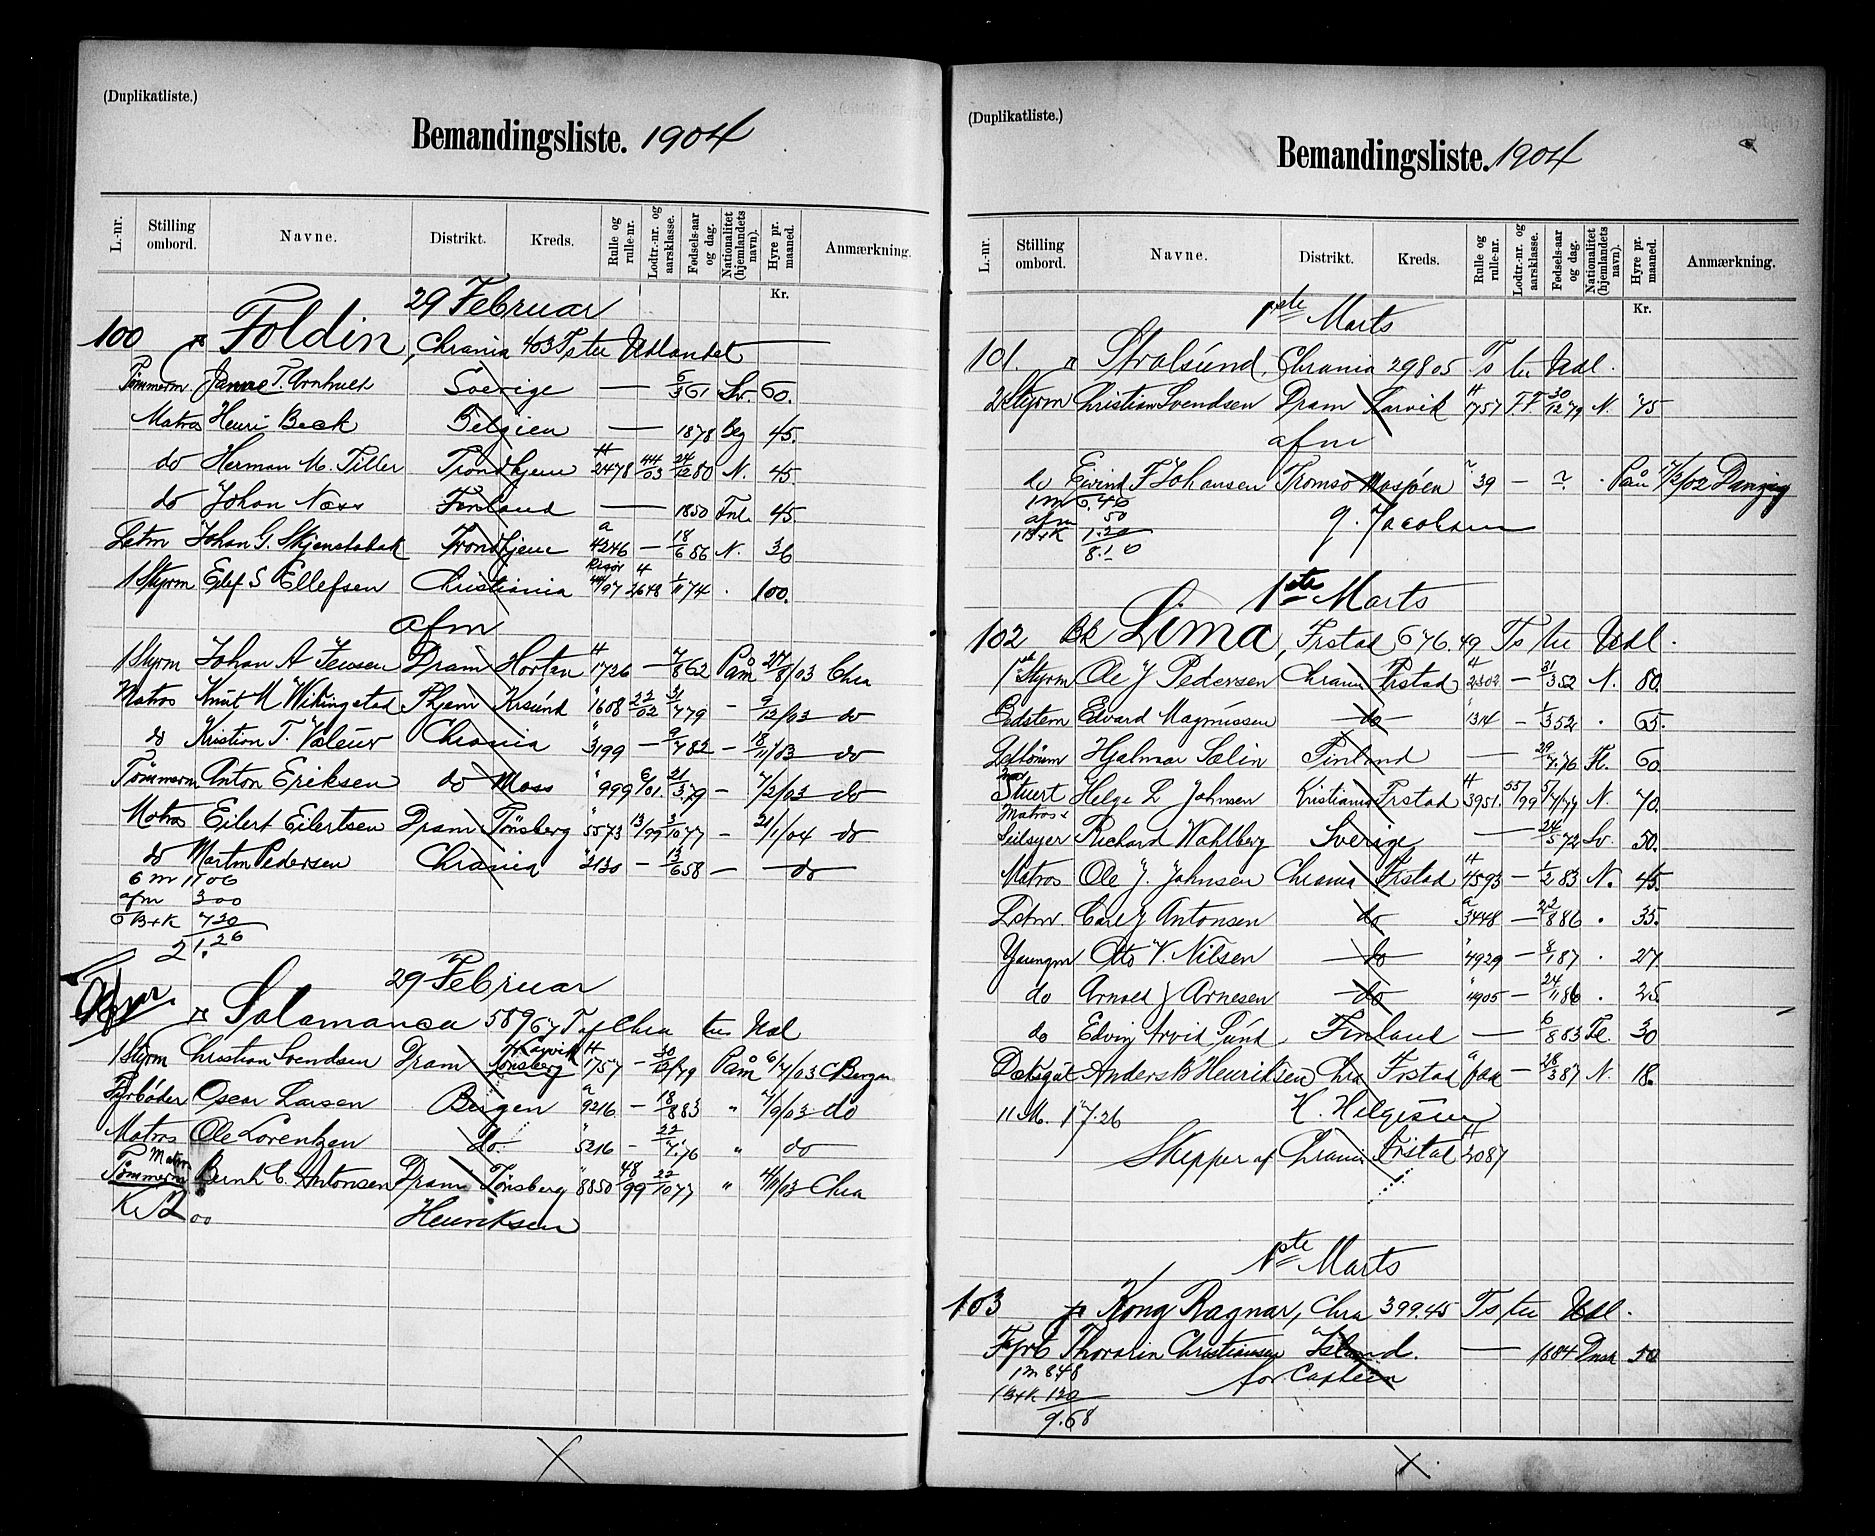 (Duplikatliste.)
Bemandingsliste. 1904
L.-nr. Stilling ombord. Navne. Distrikt. Kreds. Rulle og rulle-nr. Lodtr.-nr. og aarsklasse. Fødsels-aar og dag. Nationalitet (hjemlandets navn). Hyre pr. maaned. Anmærkning.
Kr.
29 Februar
100 Foldin, Chrania 403 Ts til Udlandet
Tømmerm. Sverige — 61 Sv. 60.
Matros Henri Beck Belgien — 1878 Belg 45.
do Herman M. Tiller Trondhjem 2478 44/03 24/12 80 N. 45.
do Johan Næss Finland — 1850 Fnl. 45.
Letm Johan G. Skjenstabak Trondhjem a 4246 — 18/6 86 N. 36
1 Styrm Elef S Ellefsen Christiania 2648 1/11 74 . 100.
afm
1 Styrm Johan A Jensen Dram Horten H 1726 — 7/8 62 Paam 27/8/03 Chra
Matros Knut M Wikingstad Thjem Krsund " 1608 22/02 3/7 79 — 9/12/03 do
do Kristian T. Chrania " 3199 — 9/7 82 — 18/11/03 do
Tømmerm Anton Eriksen do Moss " 999 6/01. 21/3 79 — 7/2/03 do
Matros Eilert Eilertsen Dram Tønsberg " 5573 13/99 3/10 77 — 21/1/04 do
do Martin Pedersen Chrania " 2130 — 13/6 58 — — do
6 m 11 06
afm 3 00
6 B+K 7 20
21.26
29 Februar
Salamanca 589 67 T af Chra til Udl
1 Styrm Christian Svendsen Dram Tønsberg Larvik H 1757 — 30/12 79 Paam 6/7/03 Bergen
Fyrbøder Oscar Larsen Bergen a 9216 — 18/8 83 " 7/9/03 do
Matros Ole Lorentzen do " 5216 — 22/7 76 " do
Tømmerm Matros Bernh C. Antonsen Dram Tønsberg " 8850 48/99 22/10 77 " 4/11/03 Chra
K 2 00 Henriksen
(Duplikatliste.)
Bemandingsliste. 1904
L.-nr. Stilling ombord. Navne. Distrikt. Kreds. Rulle og rulle-nr. Lodtr.-nr. og aarsklasse. Fødsels-aar og dag. Nationalitet (hjemlandets navn). Hyre pr. maaned. Anmærkning.
Kr.
1ste Marts
101. Stralsund, Chrania 298 05 Ts til Udl.
2 Styrm Christian Svendsen Dram Larvik H 1757 FF 30/12 79 N. 75
afm
do Eivind F Johansen Tromsø Mosjøen " 39 — ? . Paam 7/2/02 Danzig
1 m 6.40
afm 50
1 B+K 1.20
8.10
J. Jacobsen
1ste Marts
102 Bk Lima, Frstad 676.49 Ts til Udl.
1ste Styrm Ole J Pedersen Chrania Frstad H 2302 — 31/3 52 N. 80.
2den Edvard Magnussen do " 1314 — 1/3 52 . 65.
Hjalmar Salin Finland — 29/7 76 Fl. 60.
Stuert Helge L Johnsen Kristiania Frstad H 3951. 55/99 5/7 77 N. 70.
Matros & Seilsyer Richard Wahlberg Sverige — 24/5 72 Sv. 50.
Matros Ole J. Johnsen Chrania Frstad H 4593 — 1/2 83 N. 45.
Letm. Carl J Antonsen do a 3448 — 22/8 86 . 35.
Youngm Otto V. Nilsen do " 4929 — 8/1 87 . 27.
do Arnold J Arnesen do " 4905 — 24/11 86 . 25.
do Edvin Arvid Sund. Finland — 6/8 83 Fl. 30
Dæksgut Anders B Henriksen Chra Frstad a — 28/3 87 N. 18.
11 M. 17.26 H. Helgesen
Skipper af Chrania Frstad H 2087
1ste Marts
103 Kong Ragnar, Chra 399.45 Ts til Udl.
Fyrb Thorarin Christiansen Island. — 1884 Dnsk 50
1 m 8.48 for Captein
1 B+K 1 20
9.68